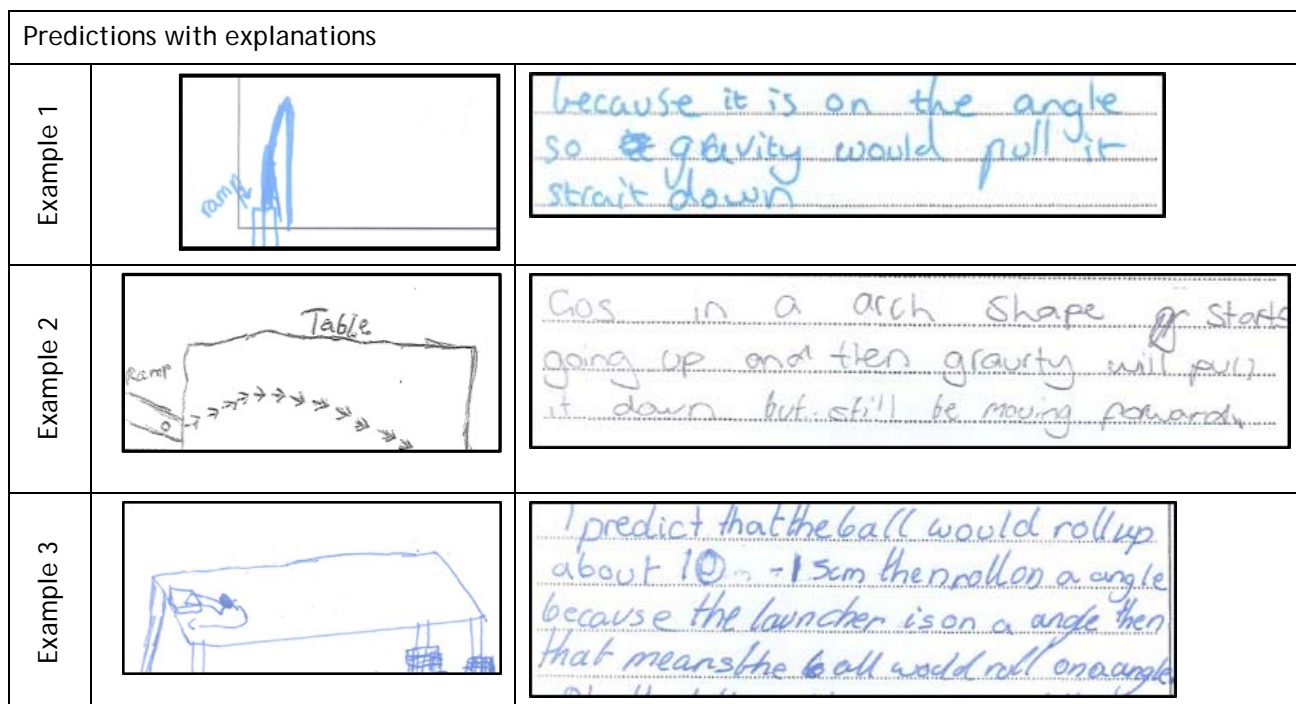 Predictions with explanations
Example 1
ramp
because it is on the angle
so gravity would pull it
strait down
Example 2
Table
Ramp
Gos in a arch shape starts
going up and then gravity will pull
it down but still be moving forward
Example 3
I predict that the ball would roll up
about 10 - 15cm then roll on a angle
because the launcher is on a angle then
that means the ball would roll on a angle